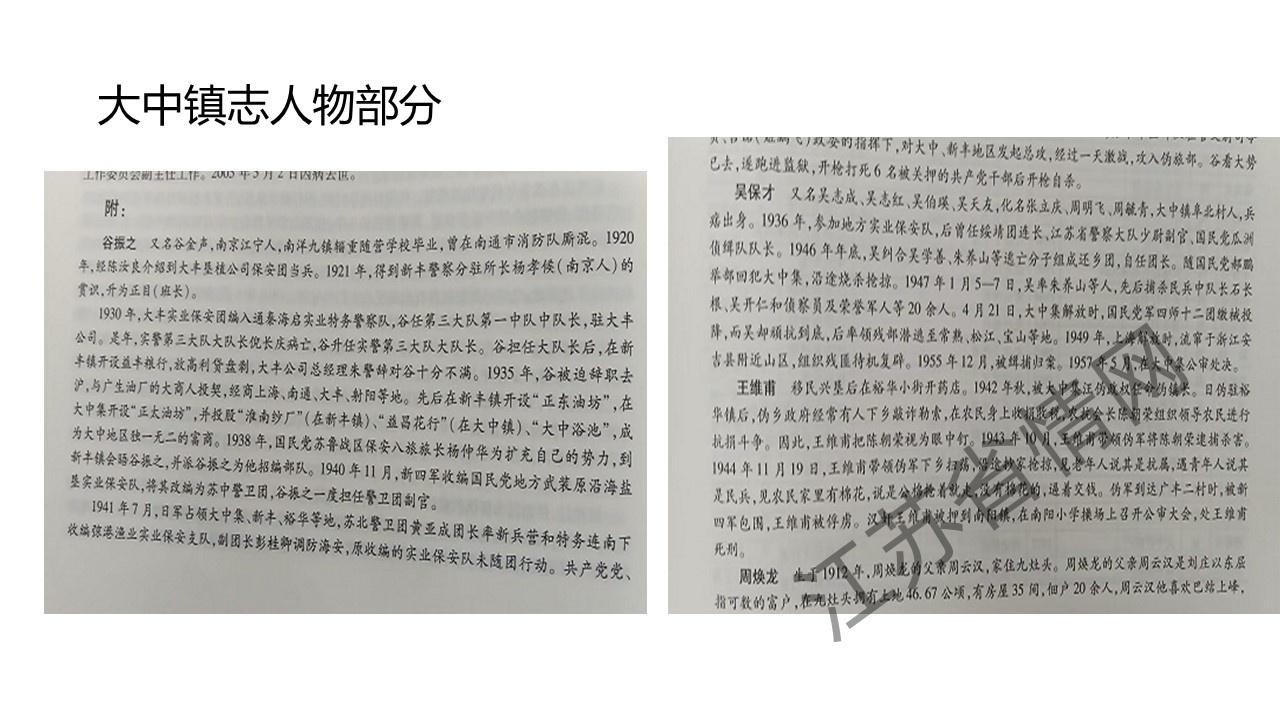 大中镇志人物部分
工作委员会副主任工作。2005年5月2日因病去世。
附：
谷振之 又名谷金声，南京江宁人，南洋九镇辎重随营学校毕业，曾在南通市消防队厮混。1920
年，经陈汝良介绍到大丰垦植公司保安团当兵。1921年，得到新丰警察分驻所长杨孝侯(南京人)的
赏识，升为正目(班长)。
1930年，大丰实业保安团编入通泰海启实业特务警察队，谷任第三大队第一中队中队长，驻大丰
公司。是年，实警第三大队大队长倪长庆病亡，谷升任实警第三大队大队长。谷担任大队长后，在新
丰镇开设益丰粮行，放高利贷盘剥，大丰公司总经理朱警辞对谷十分不满。1935年，谷被迫辞职去
沪，与广生油厂的大商人投契，经商上海、南通、大丰、射阳等地。先后在新丰镇开设“正东油坊”，在
大中集开设“正太油坊”，并投股“淮南纱厂”(在新丰镇)、“益昌花行”(在大中镇)、“大中浴池”，成
为大中地区独一无二的富商。1938年，国民党苏鲁战区保安八旅旅长杨仲华为扩充自己的势力，到
新丰镇会晤谷振之，并派谷振之为他招编部队。1940年11月，新四军收编国民党地方武装原沿海盐
垦实业保安队，将其改编为苏中警卫团，谷振之一度担任警卫团副官。
1941年7月，日军占领大中集、新丰、裕华等地，苏北警卫团黄亚成团长率新兵营和特务连南下
收编弶港渔业实业保安支队，副团长彭桂卿调防海安，原收编的实业保安队未随团行动。共产党党、
政委的指挥下，对大中、新丰地区发起总攻，经过一天激战，攻入伪旅部。谷看大势
已去，遂跑进监狱，开枪打死6名被关押的共产党干部后开枪自杀。
吴保才 又名吴志成、吴志红、吴伯瑛、吴天友，化名张立庆、周明飞、周毓青，大中镇阜北村人，兵
痞出身。1936年，参加地方实业保安队，后曾任绥靖团连长、江苏省警察大队少尉副官、国民党瓜洲
侦缉队队长。1946年年底，吴纠合吴学善、朱养山等逃亡分子组成还乡团，自任团长。随国民党郝鹏
举部回犯大中集，沿途烧杀抢掠。1947年1月5—7日，吴率朱养山等人，先后捕杀民兵中队长石长
根、吴开仁和侦察员及荣誉军人等20余人。4月21日，大中集解放时，国民党军四师十二团缴械投
降，而吴却顽抗到底，后率领残部潜逃至常熟、松江、宝山等地。1949年，上海解放时，流窜于浙江安
吉县附近山区，组织残匪待机复辟。1955年12月，被缉捕归案。1957年5月，在大中集公审处决。
王维甫 移民兴垦后在裕华小街开药店。1942年秋，被大中集江伪政权任命为镇长。日伪驻裕
华镇后，伪乡政府经常有人下乡敲诈勒索，在农民身上收捐收税，农抗会长陈朝荣组织领导农民进行
抗捐斗争。因此，王维甫把陈朝荣视为眼中钉。1943年10月，王维甫带领伪军将陈朝荣逮捕杀害。
1944年11月19日，王维甫带领伪军下乡扫荡，沿途抄家抢掠，见老年人说其是抗属，遇青年人说其
是民兵，见农民家里有棉花，说是公棉抢着就走，没有棉花的，逼着交钱。伪军到达广丰二村时，被新
四军包围，王维甫被俘虏。汉奸王维甫被押到南阳镇，在南阳小学操场上召开公审大会，处王维甫
死刑。
周焕龙 生于1912年，周焕龙的父亲周云汉，家住九灶头。周焕龙的父亲周云汉是刘庄以东屈
指可数的富户，在九灶头拥有土地46.67公顷，有房屋35间，佃户20余人，周云汉他喜欢巴结上峰，
江苏省情网